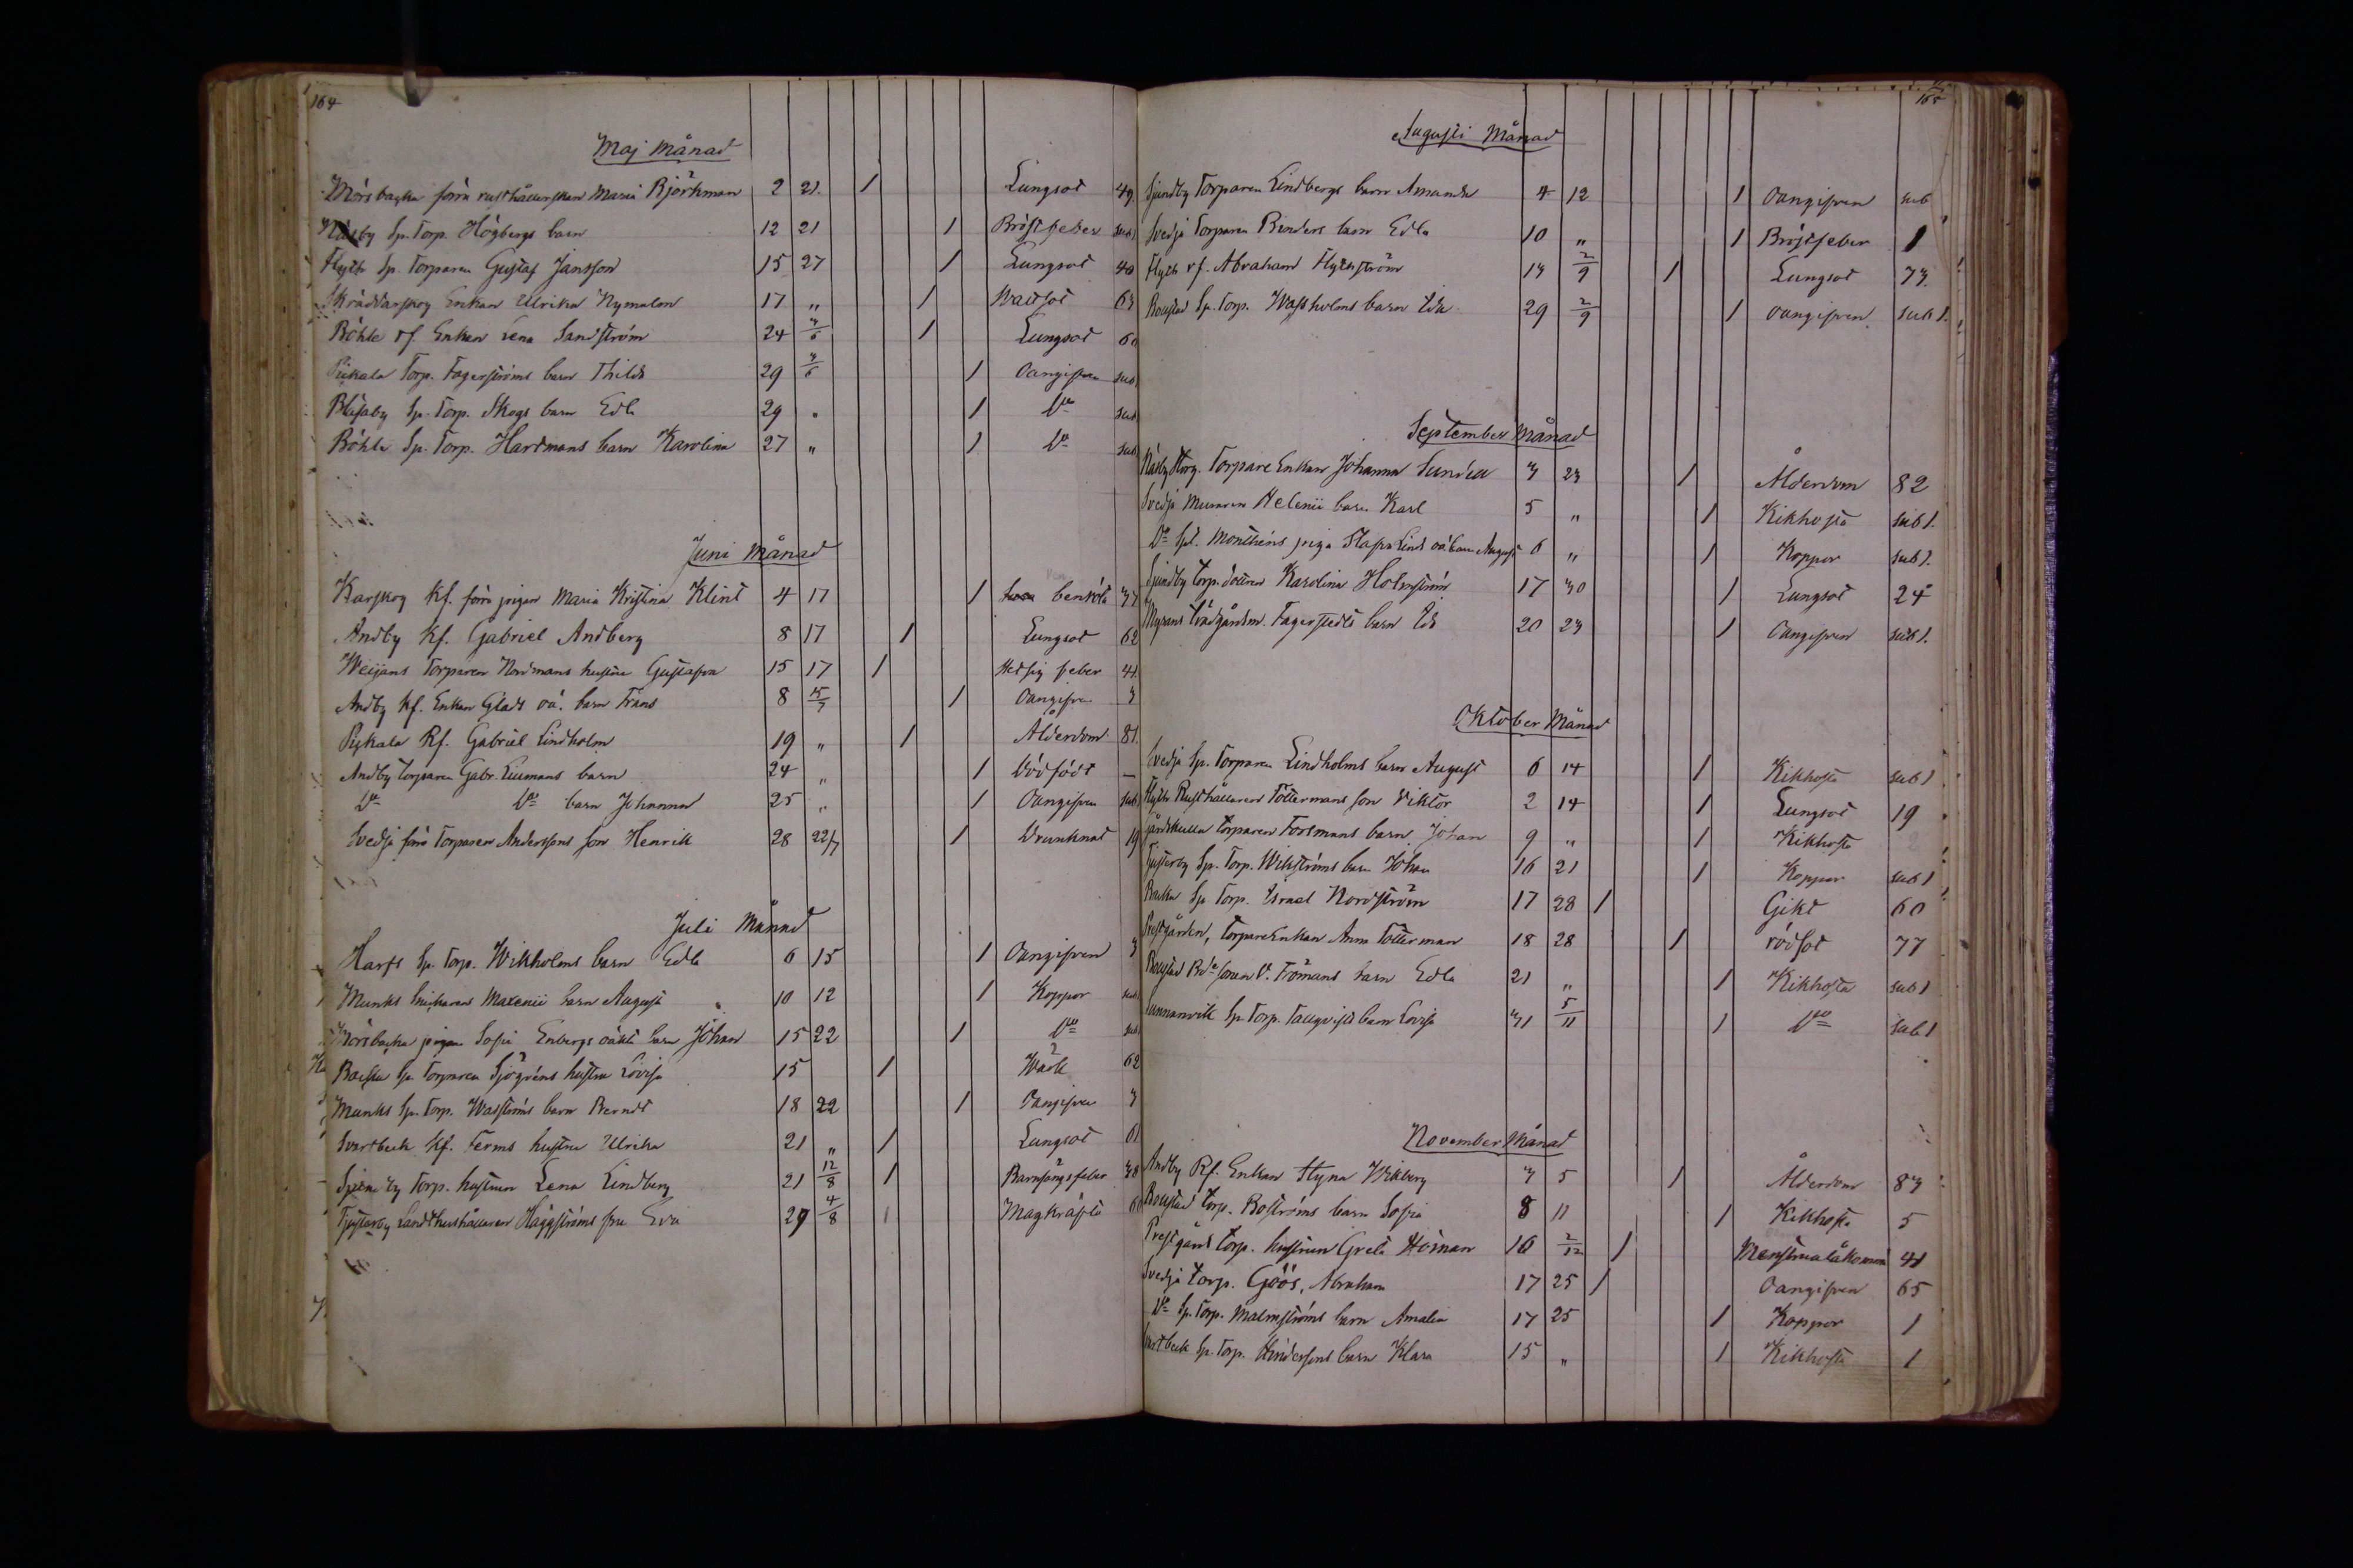 164
Maj Månad
Mörsbacka förra rusthållerskan Maria Björkman 2 21. 1 Lungsot 49
Näsby Sp. Torp. Högbergs barn 12 21 1 Bröstfeber sub 1
Flyth Sp. Torparen Gustaf Jansson 15 27 1 Lungsot 40
Skräddarskog Enkan Ulrika Nymalm 17 " 1 Wattsot 63
Böhle rf. Enkan Lena Sandström 24 3/6 1 Lungsot 60
Pickala Torp. Fagerströms barn Thilda 29 3/6 1 Oangifven sub 1
Båtsby Sp. Torp. Skogs barn Edla 29 " 1 Do sub 1
Böhle Sp. Torp. Hartmans barn Karolina 27 " 1 Do sub 1
Juni Månad
Karskog Kf. förra pigan Maria Kristina Klint 4 17 1 benröta 37
Andby Kf. Gabriel Andberg 8 17 1 Lungsot 62
Weijans Torparen Nordmans hustru Gustafva 15 17 1 Hetsig feber 41.
Andby Kf. Enkan Glads oä. barn Frans 8 15/7 1 Oangifven 3
Pickala Rf. Gabriel Lindholm 19 " 1 Ålderdom 81.
Andby Torparen Gabr. Ekmans barn 24 " 1 Dödfödt —
Do Do barn Johanna 25 " 1 Oangifven sub 1
Svedja förra Torparen Anderssons son Henrik 28 22/7 1 Drunknat 19
Juli Månad
Harfs Sp. Torp. Wikholms barn Edla 6 15 1 Oangifven 3
Munks Snickaren Maxenii barn August 10 12 1 Koppor sub 1
Mörsbacka pigan Sofia Enbergs oäkta barn Johan 15 22 1 Do sub
Backa Sp. Torparen Sjögréns hustru Lovisa 15 1 Wärk 62
Munks Sp. Torp. Wasströms barn Berndt 18 22 1 Oangifven 3
Svartbeck Kf. Ferms hustru Ulrika 21 " 1 Lungsot 61
Sjundby Torp. hustrun Lena Lindberg 21 12/8 1 Barnsängsfeber 38
Tjusterby Landthushållaren Häggströms fru Eva 29 4/8 1 Magkräfta 60
165
Augusti Månad
Sjundby Torparen Lindbergs barn Amanda 4 12 1 Oangifven sub
Svedja Torparen Benders barn Edla 10 " 1 Bröstfeber 1
Flyth rf. Abraham Flythström 13 2/9 1 Lungsot 73.
Boustad Sp. Torp. Wassholms barn Ida 29 2/9 1 Oangifven sub 1.
September Månad
Näsby Torp. Torpare Enkan Johanna Sundell 3 23 1 Ålderdom 82
Svedja Muraren Helenii barn Karl 5 " 1 Kikhosta sub 1.
Do Sol. Monthens piga Stafva Lind oä. barn August 6 " 1 Koppor sub 1.
Sjundby Torp. dottren Karolina Holmström 17 30 1 Lungsot 24
Myrans Trädgårdsm. Fagerstedts barn Ida 20 23 1 Oangifven sub 1.
Oktober Månad
Svedja Sp. Torparen Lindholms barn August 6 14 1 Kikhosta sub 1
Flyth Rusthållaren Töttermans son Viktor 2 14 1 Lungsot 19
Torparen Forsmans barn Johan 9 " 1 Kikhosta 2
Tjusterby Sp. Torp. Wikströms barn Johan 16 21 1 Koppor sub 1
Backa Sp. Torp. Israel Nordström 17 28 1 Gikt 60
Prestgården, Torpare Enkan Anna Tötterman 18 28 1 rödsot 77
Boustad Bde sonen V. Fromans barn Edla 21 " 1 Kikhosta sub 1
Sunnanvik Sp. Torp. Tallqvists barn Lovisa 31 5/11 1 Do sub 1
November Månad
Andby Rf. Enkan Styna Wikberg 3 5 1 Ålderdom 83
Boustad Torp. Boströms barn Sofia 8 11 1 Kikhosta 5
Prestgård Torp. hustrun Greta Homan 16 2/12 1 Menstrualåkomma 41
Svedja Torp. Göös, Abraham 17 25 1 Oangifven 65
Do Sp. Torp. Malmströms barn Amalia 17 25 1 Koppor 1
Svartbeck Sp. Torp. Anderssons barn Klara 15 " 1 Kikhosta 1